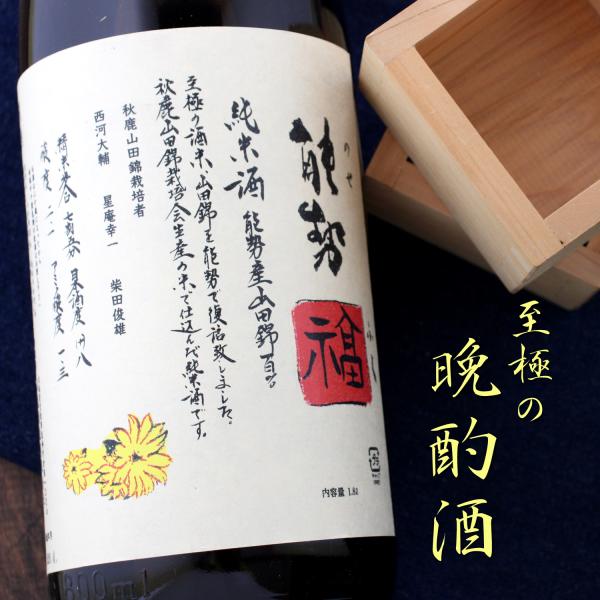 のせ
能勢
ふく
福
純米酒 能勢産山田錦百%
至極の酒米、山田錦を能勢で復活致しました。
秋鹿山田錦栽培会生産の米で仕込んだ純米酒です。
秋鹿山田錦栽培者
西河大輔 星庵幸一 柴田俊雄
精米歩合 七割五分 日本酒度
酸度 二・一 アミノ酸度 一・三
内容量 1.8ℓ
至極の
晩酌酒